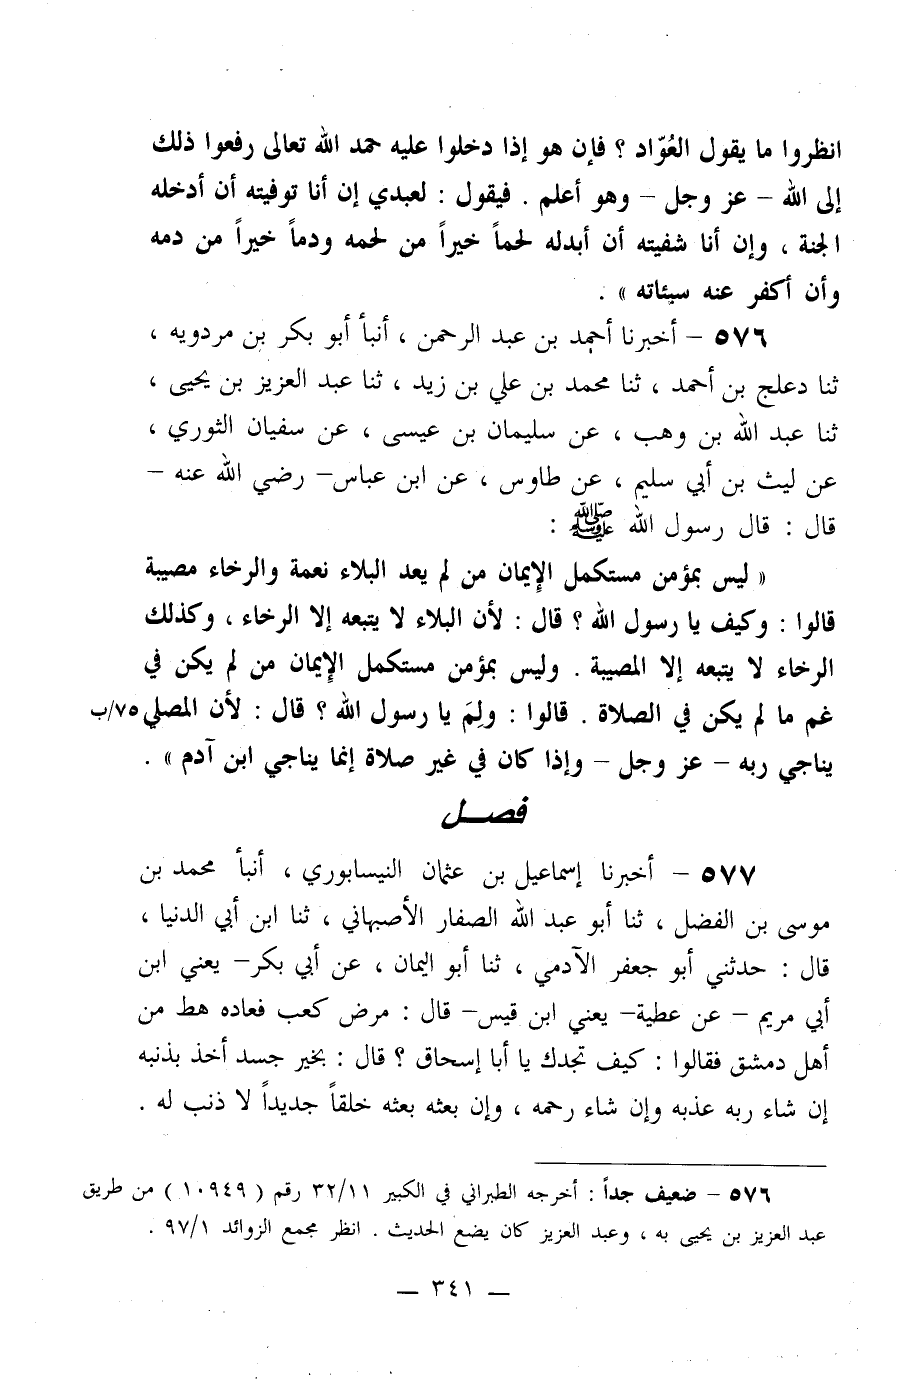 انظروا ما يقول العُوّاد ؟ فإن هو إذا دخلوا عليه حمد الله تعالى رفعوا ذلك
إلى الله – عز وجل – وهو أعلم . فيقول : لعبدي إن أنا توفيته أن أدخله
الجنة ، وإن أنا شفيته أن أبدله لحماً خيراً من لحمه ودماً خيراً من دمه
وأن أكفر عنه سيئاته » .
٥٧٦ – أخبرنا أحمد بن عبد الرحمن ، أنبأ أبو بكر بن مردويه ،
ثنا دعلج بن أحمد ، ثنا محمد بن علي بن زيد ، ثنا عبد العزيز بن يحيى ،
ثنا عبد الله بن وهب ، عن سليمان بن عيسى ، عن سفيان الثوري ،
عن ليث بن أبي سليم ، عن طاوس ، عن ابن عباس– رضي الله عنه –
قال : قال رسول الله ﷺ :
« ليس بمؤمن مستكمل الإيمان من لم يعد البلاء نعمة والرخاء مصيبة
قالوا : وكيف يا رسول الله ؟ قال : لأن البلاء لا يتبعه إلا الرخاء ، وكذلك
الرخاء لا يتبعه إلا المصيبة . وليس بمؤمن مستكمل الإيمان من لم يكن في
غم ما لم يكن في الصلاة . قالوا : ولِمَ يا رسول الله ؟ قال : لأن المصلي ٧٥/ب
يناجي ربه – عز وجل – وإذا كان في غير صلاة إنما يناجي ابن آدم » .
فصــل
٥٧٧ – أخبرنا إسماعيل بن عثمان النيسابوري ، أنبأ محمد بن
موسى بن الفضل ، ثنا أبو عبد الله الصفار الأصبهاني ، ثنا ابن أبي الدنيا ،
قال : حدثني أبو جعفر الآدمي ، ثنا أبو اليمان ، عن أبي بكر– يعني ابن
أبي مريم – عن عطية– يعني ابن قيس– قال : مرض كعب فعاده هط من
أهل دمشق فقالوا : كيف تجدك يا أبا إسحاق ؟ قال : بخير جسد أخذ بذنبه
إن شاء ربه عذبه وإن شاء رحمه ، وإن بعثه بعثه خلقاً جديداً لا ذنب له .
٥٧٦ – ضعيف جداً : أخرجه الطبراني في الكبير ٣٢/١١ رقم ( ١٠٩٤٩ ) من طريق
عبد العزيز بن يحيى به ، وعبد العزيز كان يضع الحديث . انظر مجمع الزوائد ٩٧/١ .
– ٣٤١ –